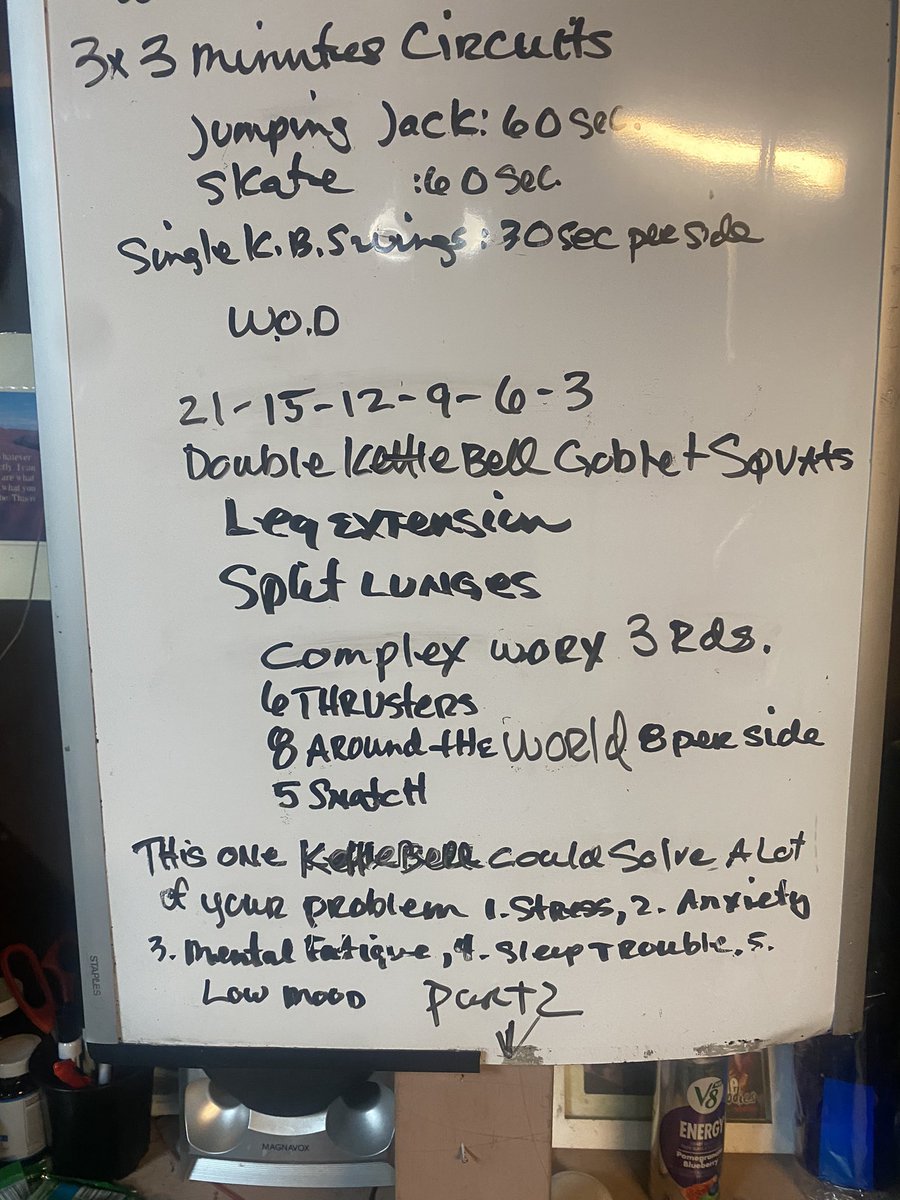 3x 3 minutes Circuits
Jumping Jack: 60 sec.
Skate :60 sec.
Single K.B. Swings: 30 sec per side
W.O.D
21-15-12-9-6-3
Double Kettle Bell Goblet Squats
Leg EXTENSION
Split LUNGES
Complex WORX 3 Rds.
6 THRUSTERS
8 AROUND THE WORLD 8 per side
5 SNATCH
THIS ONE KettleBell could Solve A Lot
of your problem 1. STRESS, 2. Anxiety
3. Mental Fatigue, 4. Sleep TROUBLE, 5.
Low MOOD Part 2
STAPLES
MAGNAVOX
V8
ENERGY
Pomegranate
Blueberry